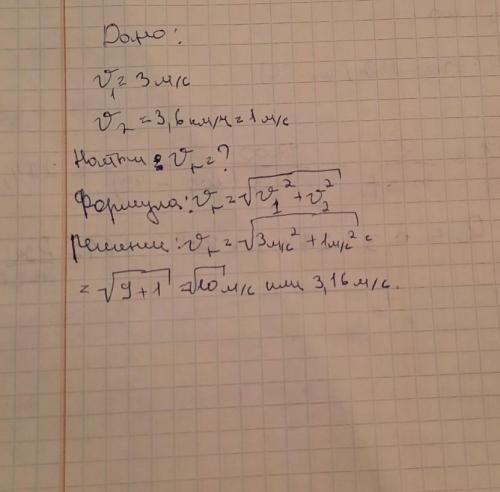 Дано:
υ₁ = 3 м/с
υ₂ = 3,6 км/ч = 1 м/с
Найти: υᵣ = ?
Формула: υᵣ = √(υ₁² + υ₂²)
Решение: υᵣ = √(3м/с² + 1м/с²) =
= √(9+1) = √10 м/с или 3,16 м/с.